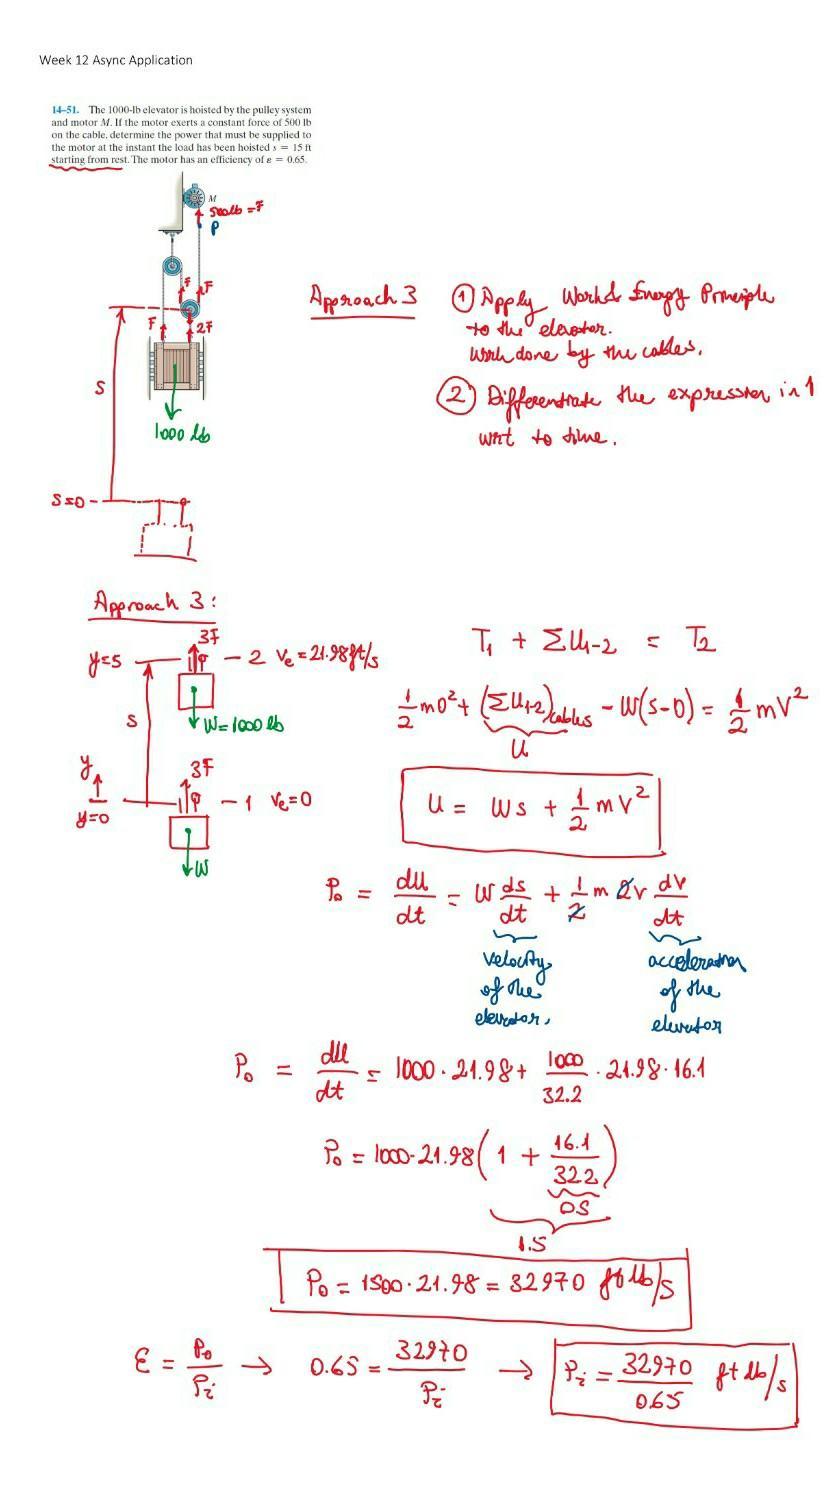 Week 12 Async Application
14–51. The 1000-lb elevator is hoisted by the pulley system
and motor M. If the motor exerts a constant force of 500 lb
on the cable, determine the power that must be supplied to
the motor at the instant the load has been hoisted s = 15 ft
starting from rest. The motor has an efficiency of ε = 0.65.
M
500lb = F
P
F F
F 2F
S
1000 lb
S=0
Approach 3 ① Apply Work & Energy Principle
to the elevator.
Work done by the cables.
② Differentiate the expression in 1
wrt to time.
Approach 3:
3F
y=s - 2 Ve = 21.98 ft/s
S
W=1000 lb
y
3F
y=0 - 1 Ve=0
W
T1 + ΣU1-2 = T2
1/2 m0² + (ΣU1-2)cables - W(s-0) = 1/2 mV²
U
U = Ws + 1/2 mV²
Po = dU/dt = W ds/dt + 1/2 m 2v dv/dt
velocity of the elevator.
acceleration of the elevator
Po = dU/dt = 1000 · 21.98 + 1000/32.2 · 21.98 · 16.1
Po = 1000 · 21.98 (1 + 16.1/32.2)
0.5
1.5
Po = 1500 · 21.98 = 32970 ft lb/s
ε = Po/Pi → 0.65 = 32970/Pi → Pi = 32970/0.65 ft lb/s